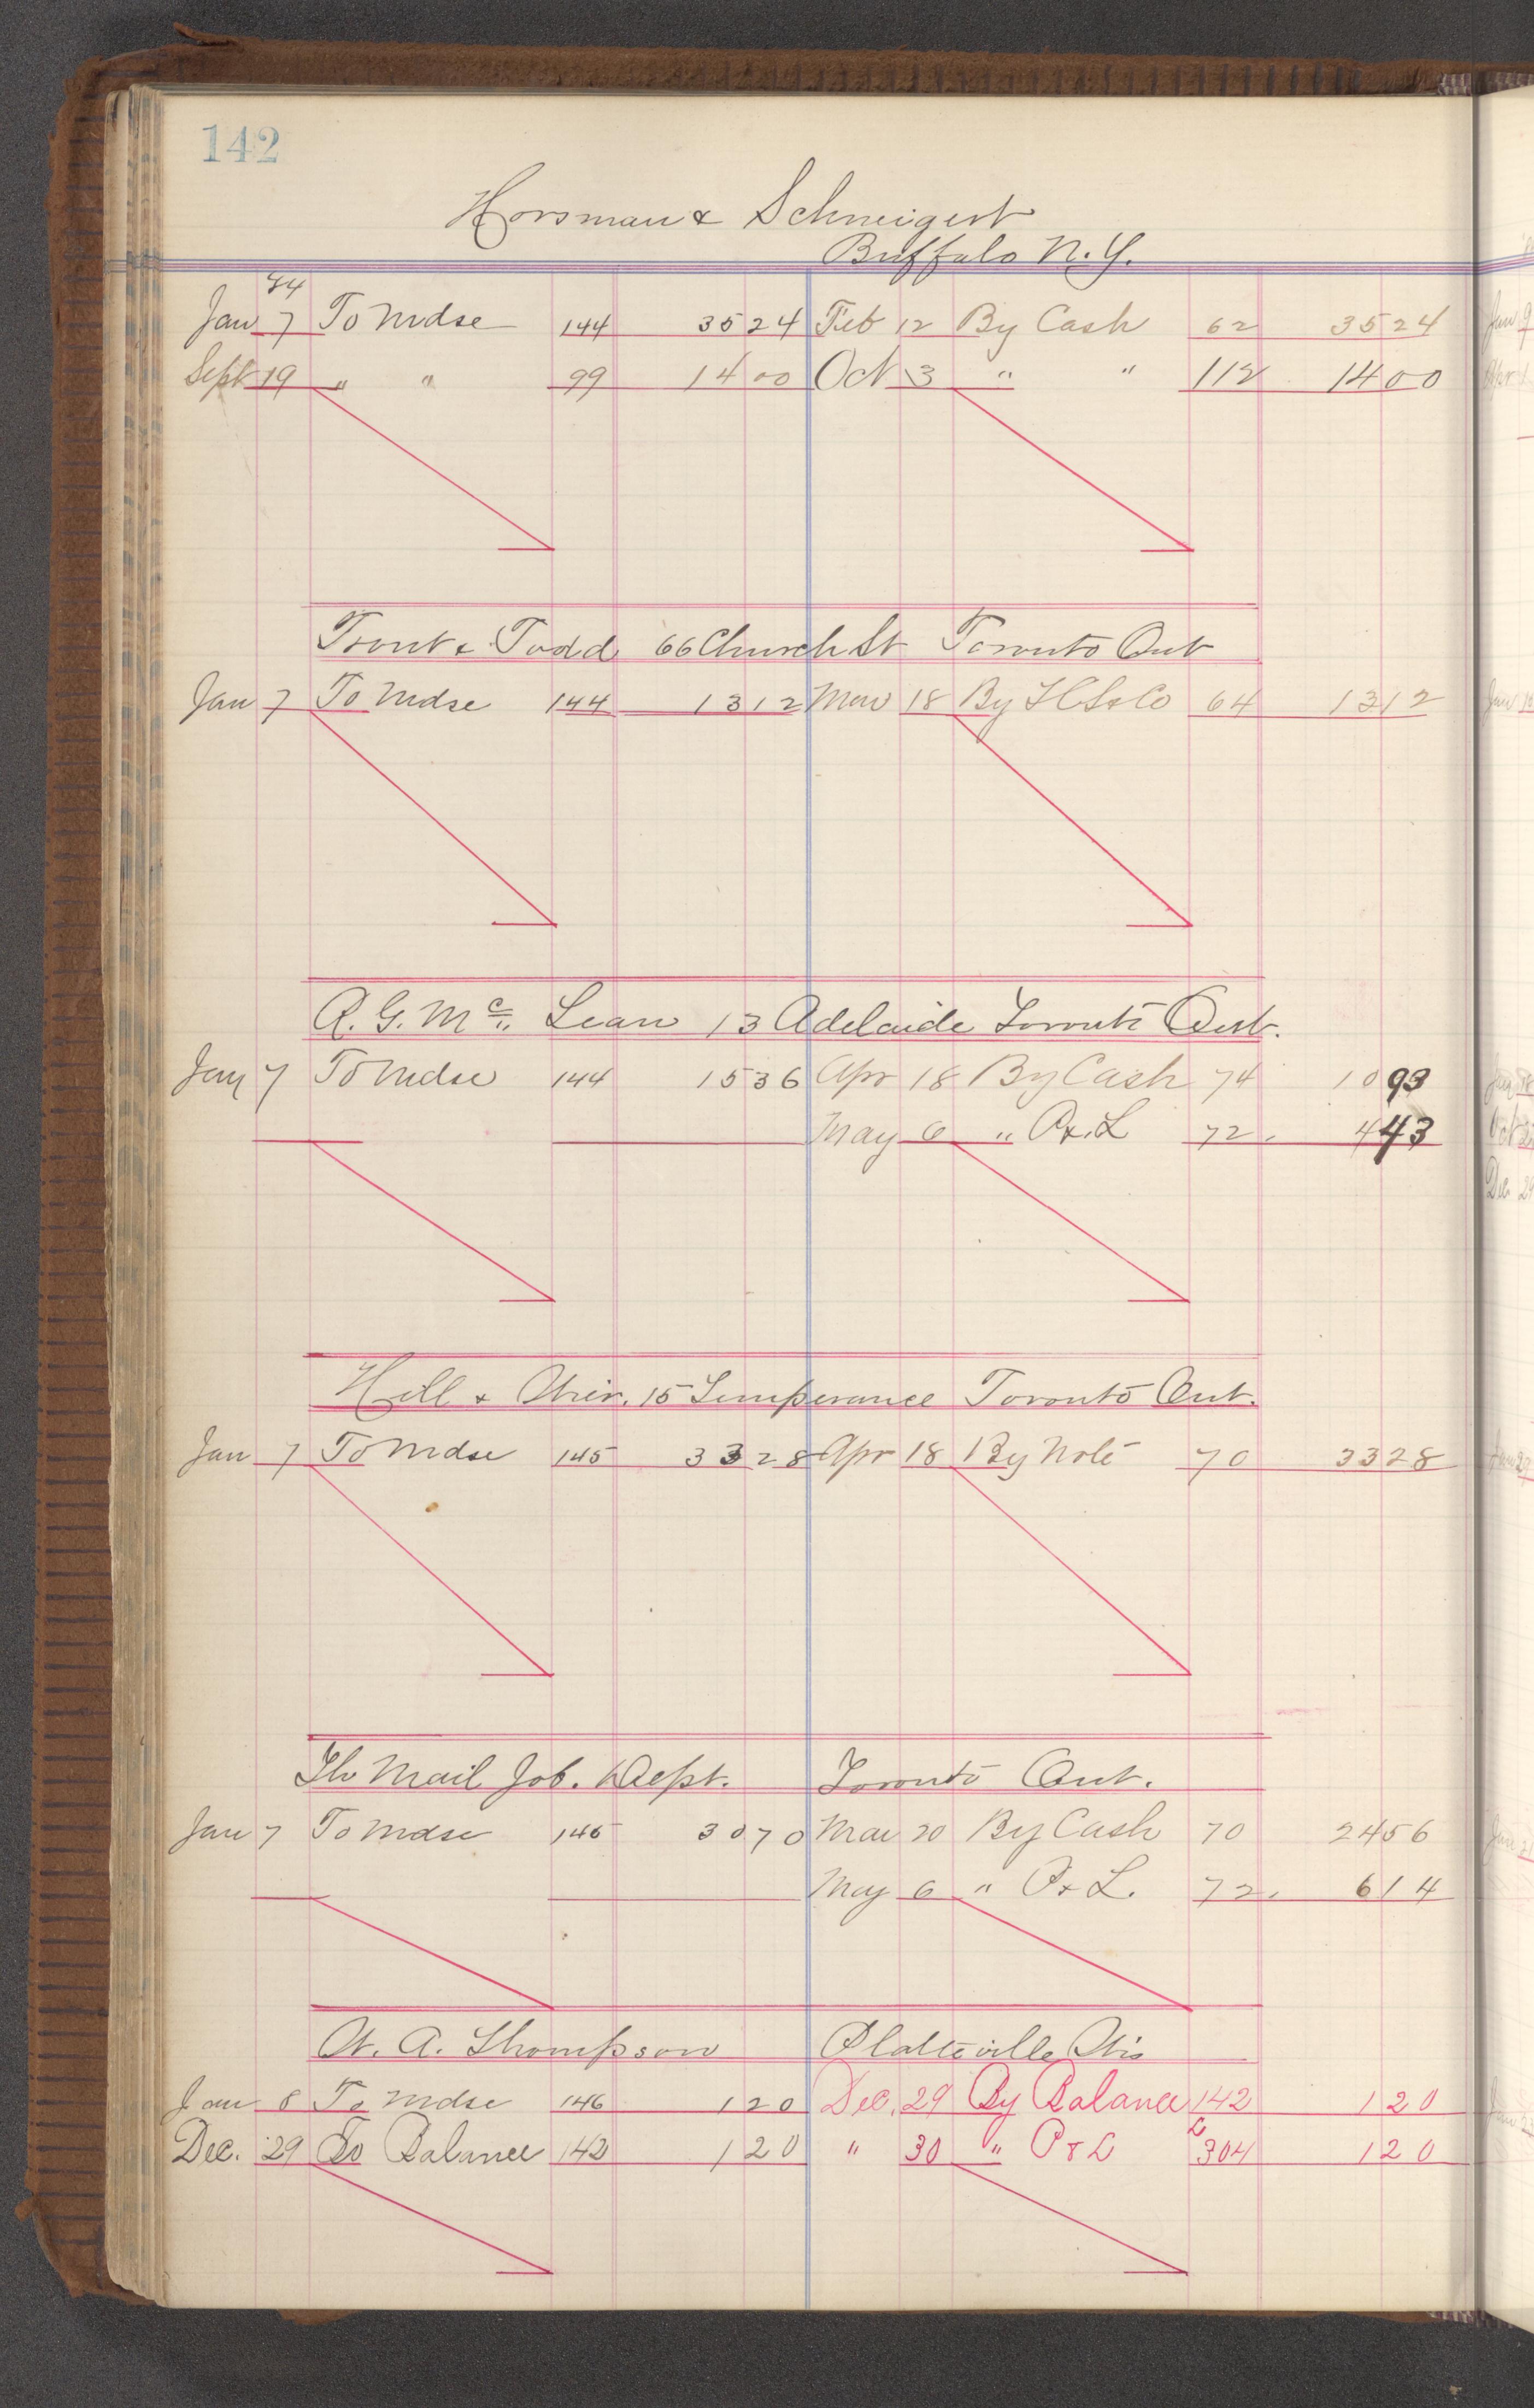 142
Horsman & Schweigert
Buffalo N.Y.
84
Jan 7 To Mdse 144 35 24 Feb 12 By Cash 62 35 24
Sept 19 " " 99 14 00 Oct 3 " " 112 14 00
Trout & Todd 66 Church St Toronto Ont
Jan 7 To Mdse 144 13 12 Mar 18 By 64 13 12
R. G. Mc Lean 13 Adelaide Toronto Ont.
Jan 7 To Mdse 144 15 36 Apr 18 By Cash 74 10 93
May 6 " P & L 72. 4 43
Hill & Weir. 15 Temperance Toronto Ont.
Jan 7 To Mdse 145 33 28 Apr 18 By Note 70 33 28
The Mail Job. Dept. Toronto Ont.
Jan 7 To Mdse 145 30 70 Mar 20 By Cash 70 24 56
May 6 " P & L. 72. 6 14
A. Thompson Platteville Wis
Jan 8 To Mdse 146 1 20 Dec. 29 By Balance 142 1 20
Dec. 29 To Balance 142 1 20 " 30 " P & L L 304 1 20